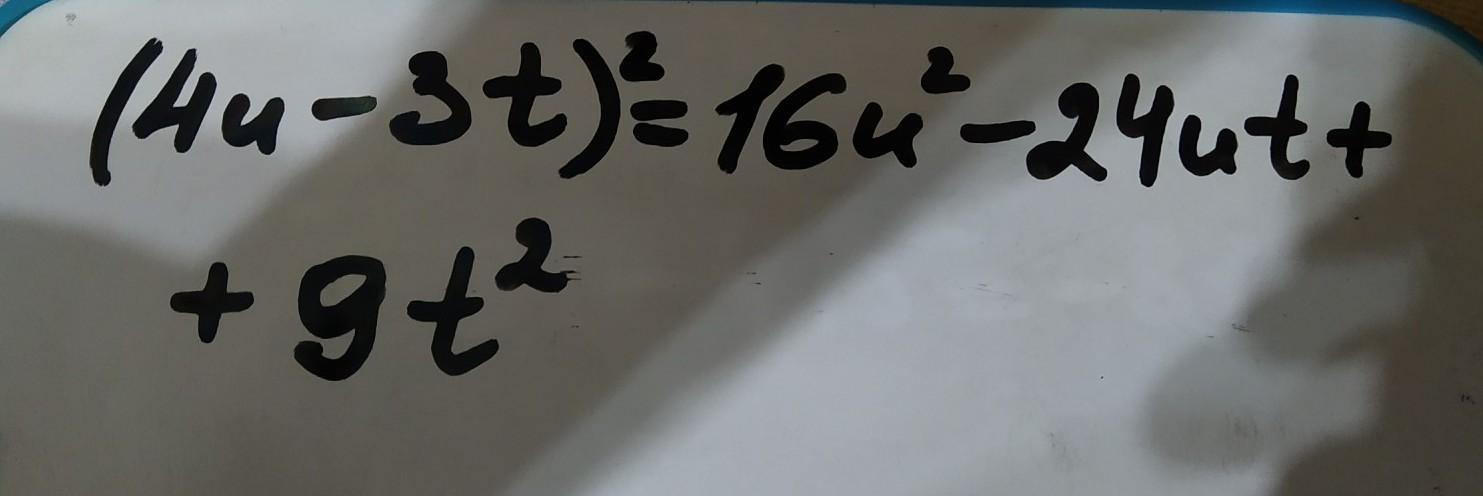 (4u-3t)²=16u²-24ut+
+9t²